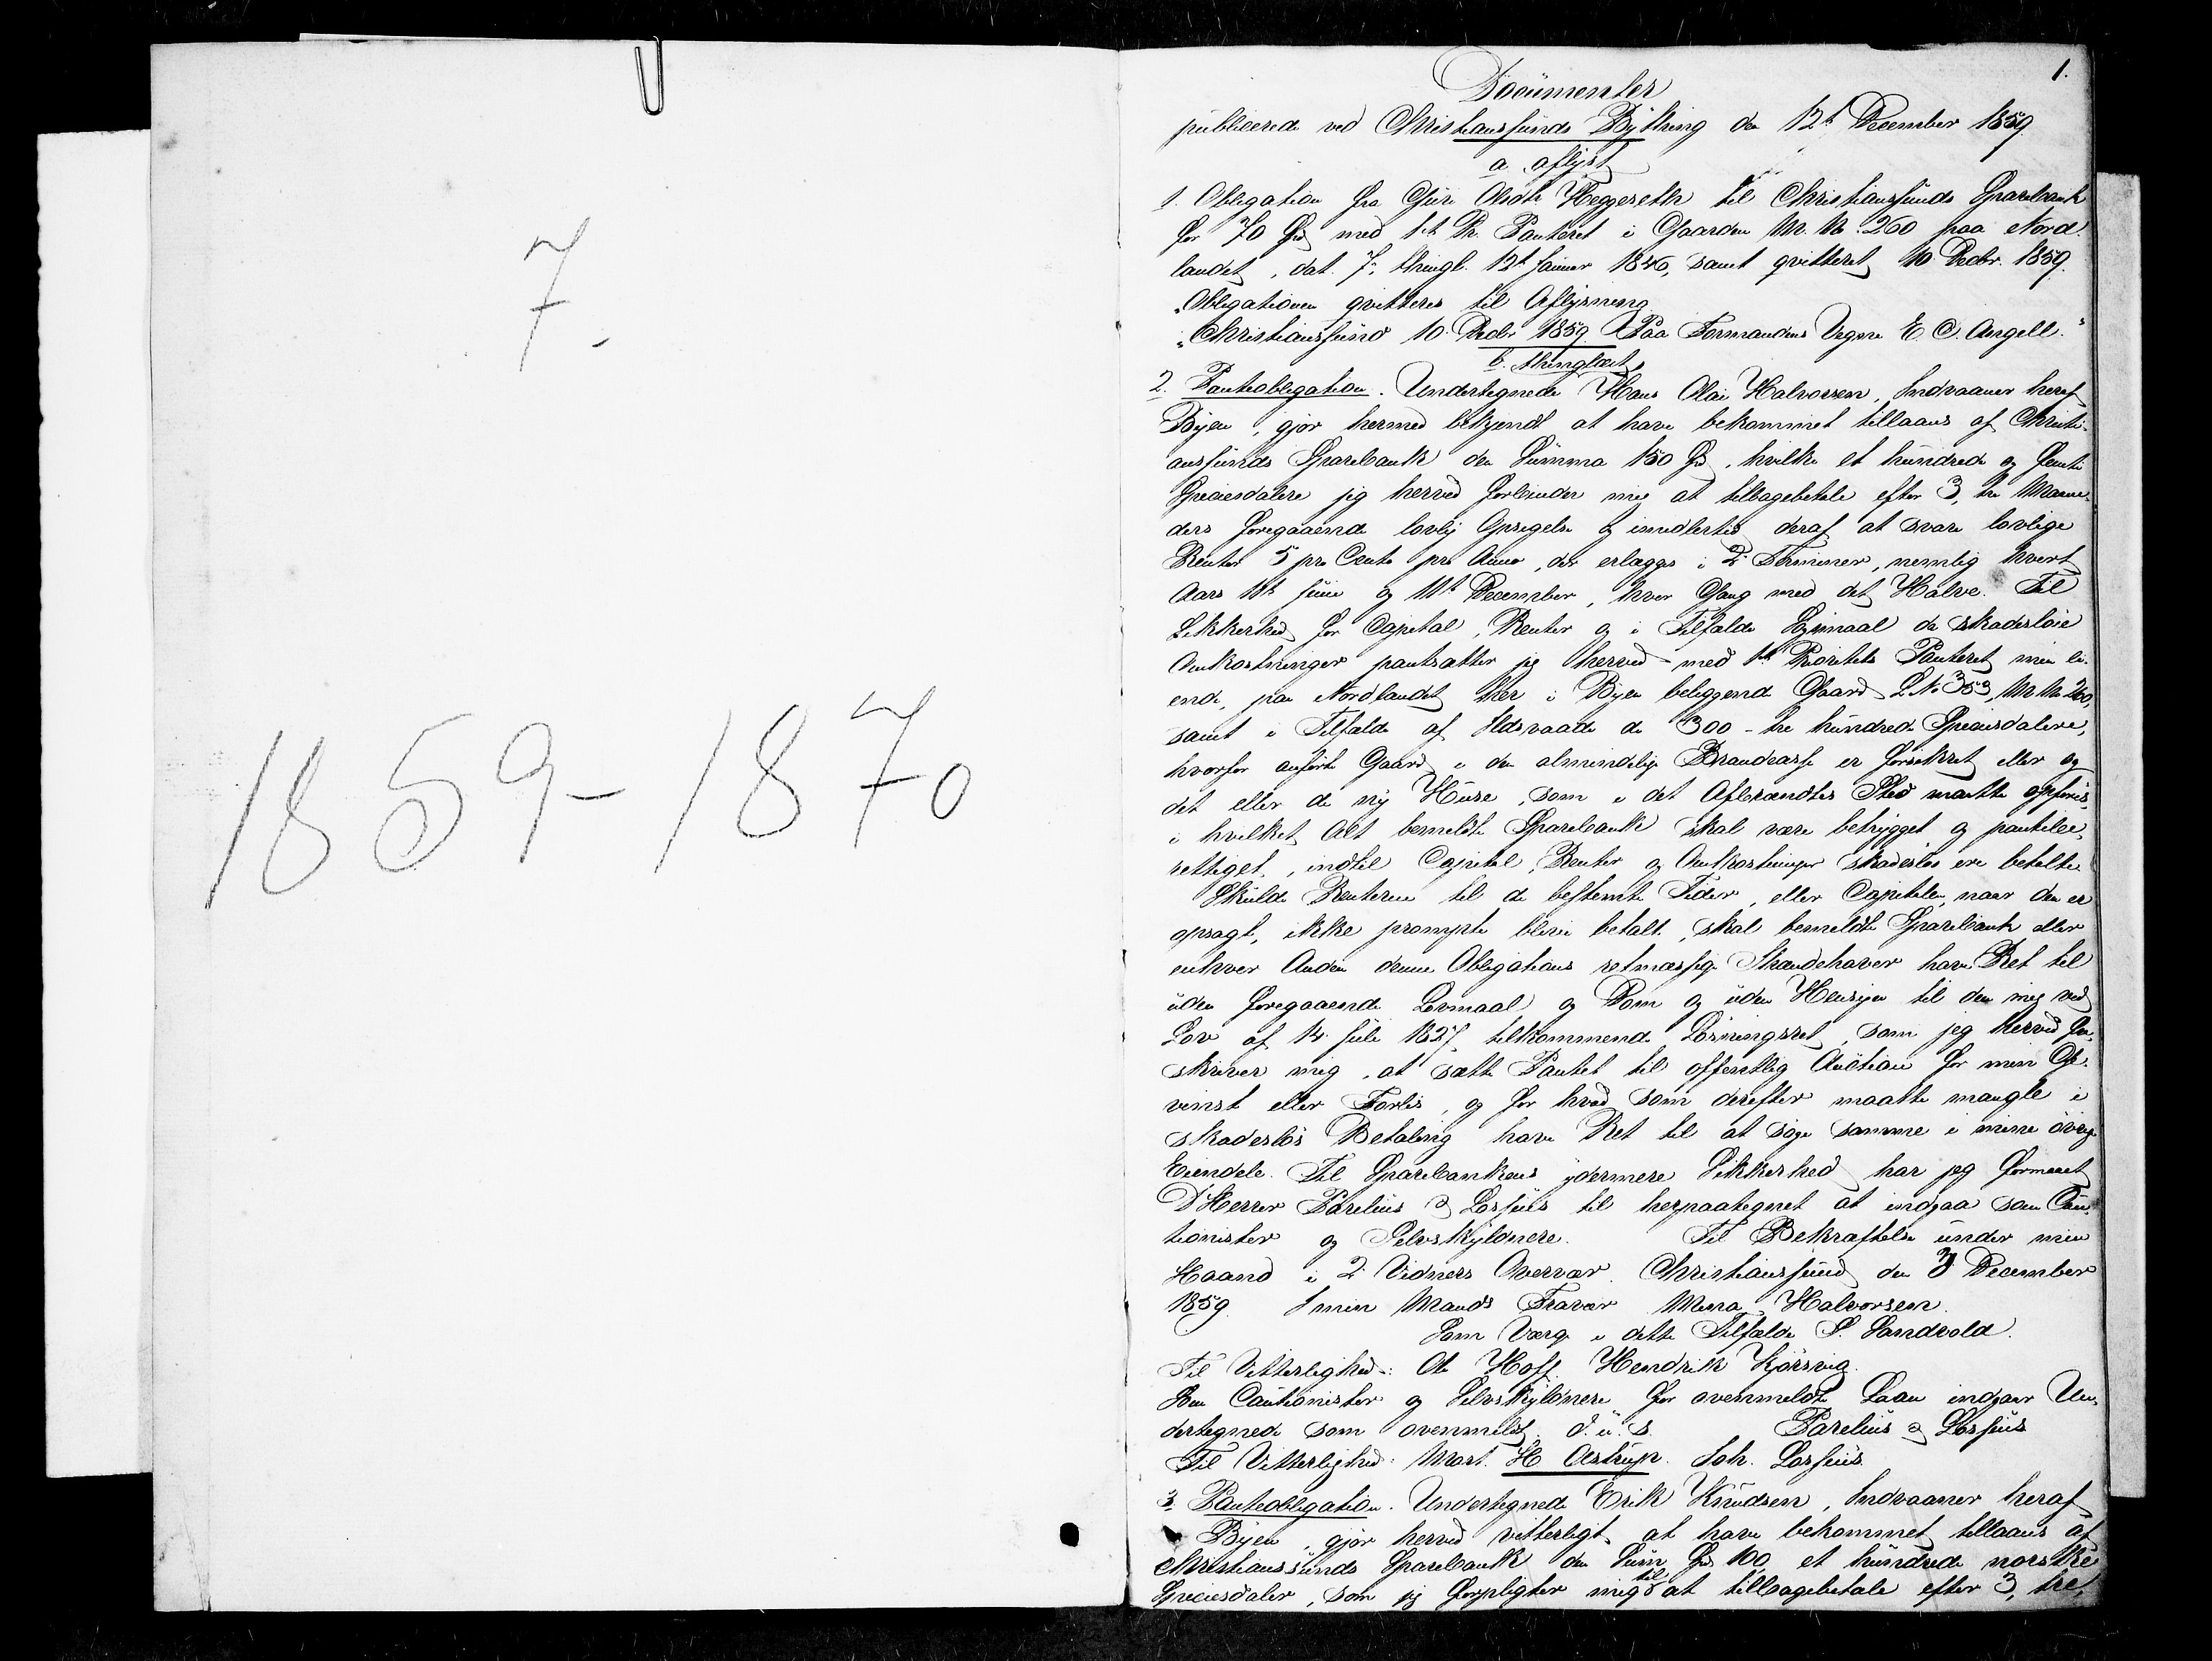 7.
1859-1870
1.
Documenter
publicerede ved Christiansunds Bything den 12te December 1859
a aflyst
1. Obligation fra Guri Olsdtr Heggereth til Christiansunds Sparebank
for 70 Spd med 1ste Pr. Panteret i Gaarden Mr. No 260 paa Nord-
landet, dat. 7, thingl. 12te Januar 1846, samt qvitteret 10 Decbr. 1859.
„Obligationen qvitteres til Aflysning
„Christiansund 10 Decbr 1859 Paa Formandens Vegne E. C. Angell.“
b. thinglæst
2. Panteobligation. Undertegnede Hans Olai Halvorsen, Indvaaner heraf
Byen, gjør hermed bekjendt at have bekommet tillaans af Christi-
ansunds Sparebank den Summa 150 Spd, hvilke et hundrede og femti
Speciesdalere jeg herved forbinder mig at tilbagebetale efter 3, tre Maane-
ders foregaaende lovlig Opsigelse og imidlertid deraf at svare lovlige
Renter 5 pro Cento pro Anno, der erlægges i 2 Terminer, nemlig hvert
Aars 11te Juni og 11te December, hver Gang med det Halve. Til
Sikkerhed for Capital, Renter og i Tilfælde Søgsmaal de skadesløse
Omkostninger pantsætter jeg herved med 1ste Prioritets Panteret min ei-
ende, paa Nordlandet her i Byen beliggende Gaard L No 353, Mr. No 260,
samt i Tilfælde af Ildsvaade de 300 - tre hundrede Speciesdalere,
hvorfor anførte Gaard i den almindelige Brandcasse er forsikret eller og
det eller de ny Huse, som i det Afbrændtes Sted maatte opføres,
i hvilket Alt bemeldte Sparebank skal være betrygget og pantebe-
rettiget, indtil Capital, Renter og Omkostninger skadesløs ere betalte.
Skulde Renterne til de bestemte Tider, eller Capitalen, naar den er
opsagt, ikke prompte blive betalt, skal bemeldte Sparebank eller
enhver Anden denne Obligations retmæssige Ihændehaver have Ret til
uden foregaaende Lovmaal og Dom og uden Hensyn til den mig ved
Lov af 14 Juli 1827 tilkommende Løsningsret, som jeg herved fra-
skriver mig, at sætte Pantet til offentlig Auction for min Ge-
vinst eller Forlis, og for hvad som derefter maatte mangle i
skadesløs Betaling have Ret til at søge samme i mine øvrige
Eiendele. Til Sparebankens ydermere Sikkerhed har jeg formaaet
D'Herrer Parelius & Lossius til herpaategnet at indgaa som Cau-
tionister og Selvskyldnere. Til Bekræftelse under min
Haand i 2 Vidners Overvær. Christiansund den 3 December
1859. I min Mands Fravær Mena Halvorsen.
Som Værge i dette Tilfælde S. Sandvold.
Til Vitterlighed: Ole Hoff Hendrik Kjørsvig.
Som Cautionister og Selvskyldnere for ovenmeldte Laan indgaar Un-
dertegnede som ovenmeldt. d. u. s. Parelius & Lossius
Til Vitterlighed: Mart. H Astrup. Joh. Lossius.
3. Panteobligation. Undertegnede Erik Knudsen, Indvaaner heraf
Byen, gjør herved vitterligt, at have bekommet tillaans af
Christiansunds Sparebank den Sum Spd. 100, et hundrede norske
Speciesdaler, som jeg forpligter mig til at tilbagebetale efter 3, tre,